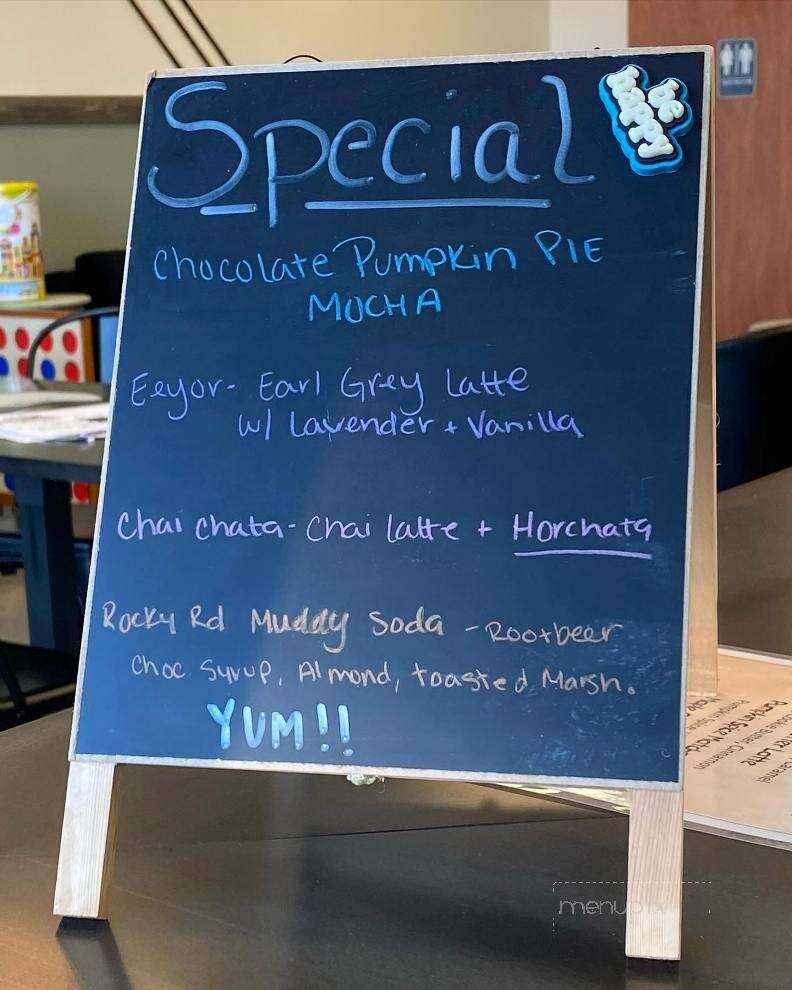 Special
be
happy
Chocolate Pumpkin PIE
MOCHA
Eeyor- Earl Grey Latte
w/ Lavender + Vanilla
Chai chata- Chai latte + Horchata
Rocky Rd Muddy Soda - Rootbeer
Choc. Syrup, Almond, toasted Marsh.
YUM!!